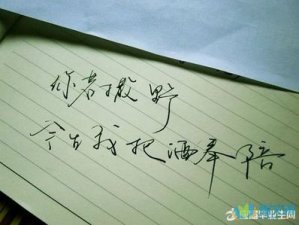 你若撒野
今生我把酒奉陪